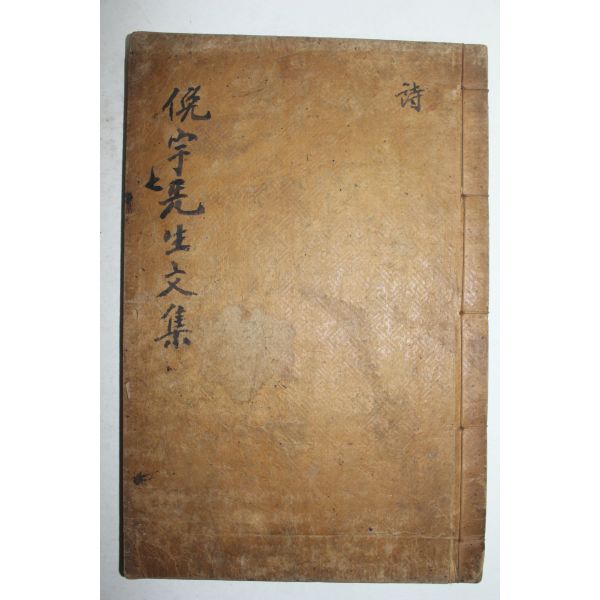 詩
俛宇先生文集